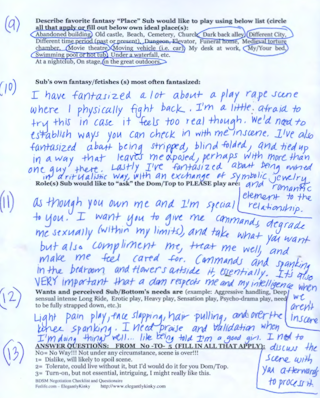 (9) Describe favorite fantasy "Place" Sub would like to play using below list (circle
all that apply or fill out below own ideal place(s):
Abandoned building, Old castle, Beach, Cemetery, Church, Dark back alley, Different City,
Different time period (past or present), Dungeon, Elevator, Funeral home, Medieval torture
chamber, Movie theatre, Moving vehicle (i.e. car) My desk at work, My/Your bed,
Swimming pool or hot tub, Under a waterfall, etc.
At a nightclub, On stage, in the great outdoors.
(10) Sub's own fantasy/fetishes (s) most often fantasized:
I have fantasized a lot about a play rape scene
where I physically fight back. I'm a little afraid to
try this in case it feels too real though. We'd need to
establish ways you can check in with me inscene. I've also
fantasized about being stripped, blindfolded, and tied up
in a way that leaves me exposed, perhaps with more than
one guy there. Lastly I've fantasized about being owned
in a ritualistic way with an exchange of symbolic jewelry
and romantic
element to the
relationship.
Role(s) Sub would like to "ask" the Dom/Top to PLEASE play are:
(11) As though you own me and I'm special
to you. I want you to give me commands, degrade
me sexually (within my limits), and take what you want
but also compliment me, treat me well, and
make me feel cared for. Commands and spanking
in the bedroom and flowers outside it, essentially. It's also
VERY important that a dom respect me and my intelligence when
we
aren't
inscene
(12) Wants and perceived Sub/Bottom's needs are (example: Aggressive handling, Deep
sensual intense Long Ride, Erotic play, Heavy play, Sensation play, Psycho-drama play, need
to be fully stripped down, etc.):
Light pain play, face slapping, hair pulling, and over the
knee spanking. I need praise and validation when
I'm doing things well... like being told I'm a good girl. I need to
discuss the
scene with
you afterwards
to process it
(13) ANSWER QUESTIONS: FROM NO -TO- 5 (FILL IN ALL THAT APPLY):
No= No Way!!! Not under any circumstance, scene is over!!!
1= Dislike, will likely to spoil scene.
2= Tolerate, could live without it, but I'd would do it for you Dom/Top.
3= Turn-on, but not essential, intriguing, I might really like this.
BDSM Negotiation Checklist and Questionnaire
Fetlife.com - ElegantlyKinky www.elegantlykinky.com